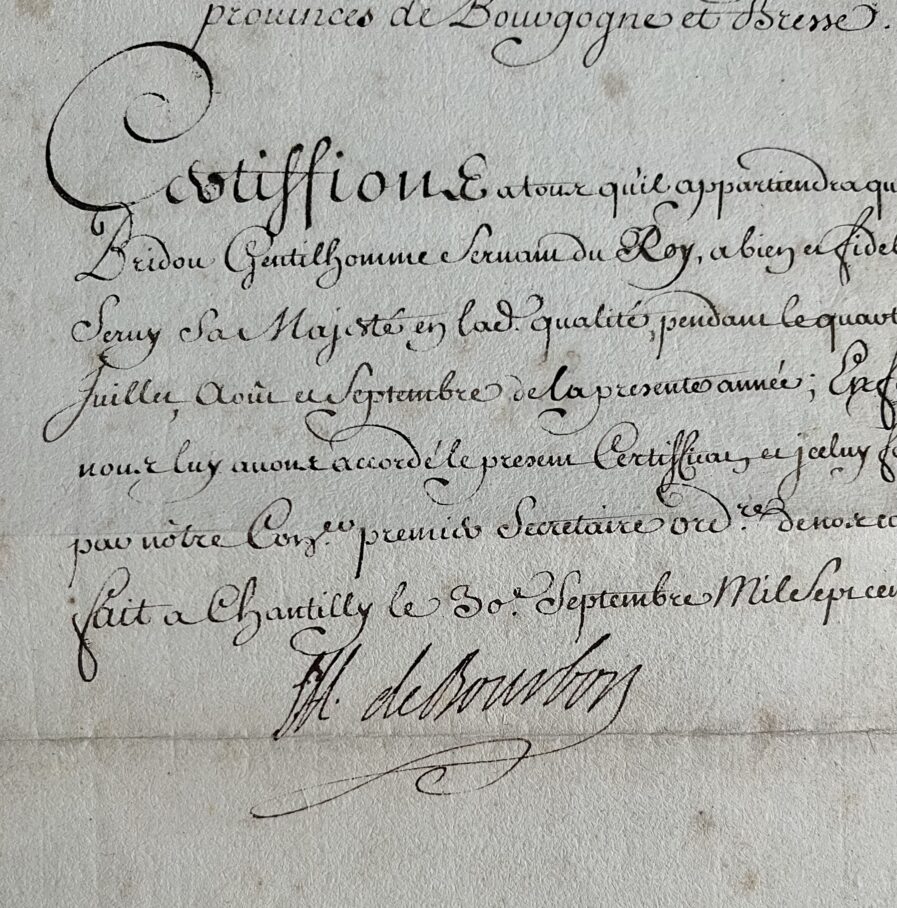 provinces de Bourgogne et Bresse.
Certiffions a tous qu'il appartiendra qu
Bridou Gentilhomme Servant du Roy, a bien et fidel
Servy Sa Majesté en lad. qualité, pendant le quart
Juillet, Août et Septembre de la presente année; En f
nous luy avons accordé le present Certifficat, et jceluy f
par nôtre Con.er premier Secretaire ord.re de nos co
fait a Chantilly le 30.e Septembre Mil Sept cen
de Bourbon